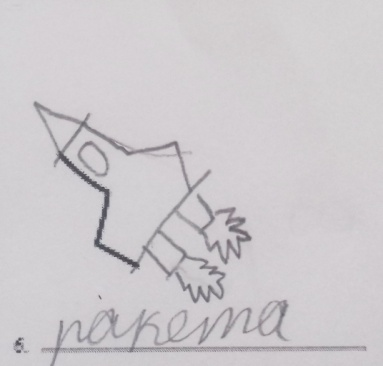 6. ракета